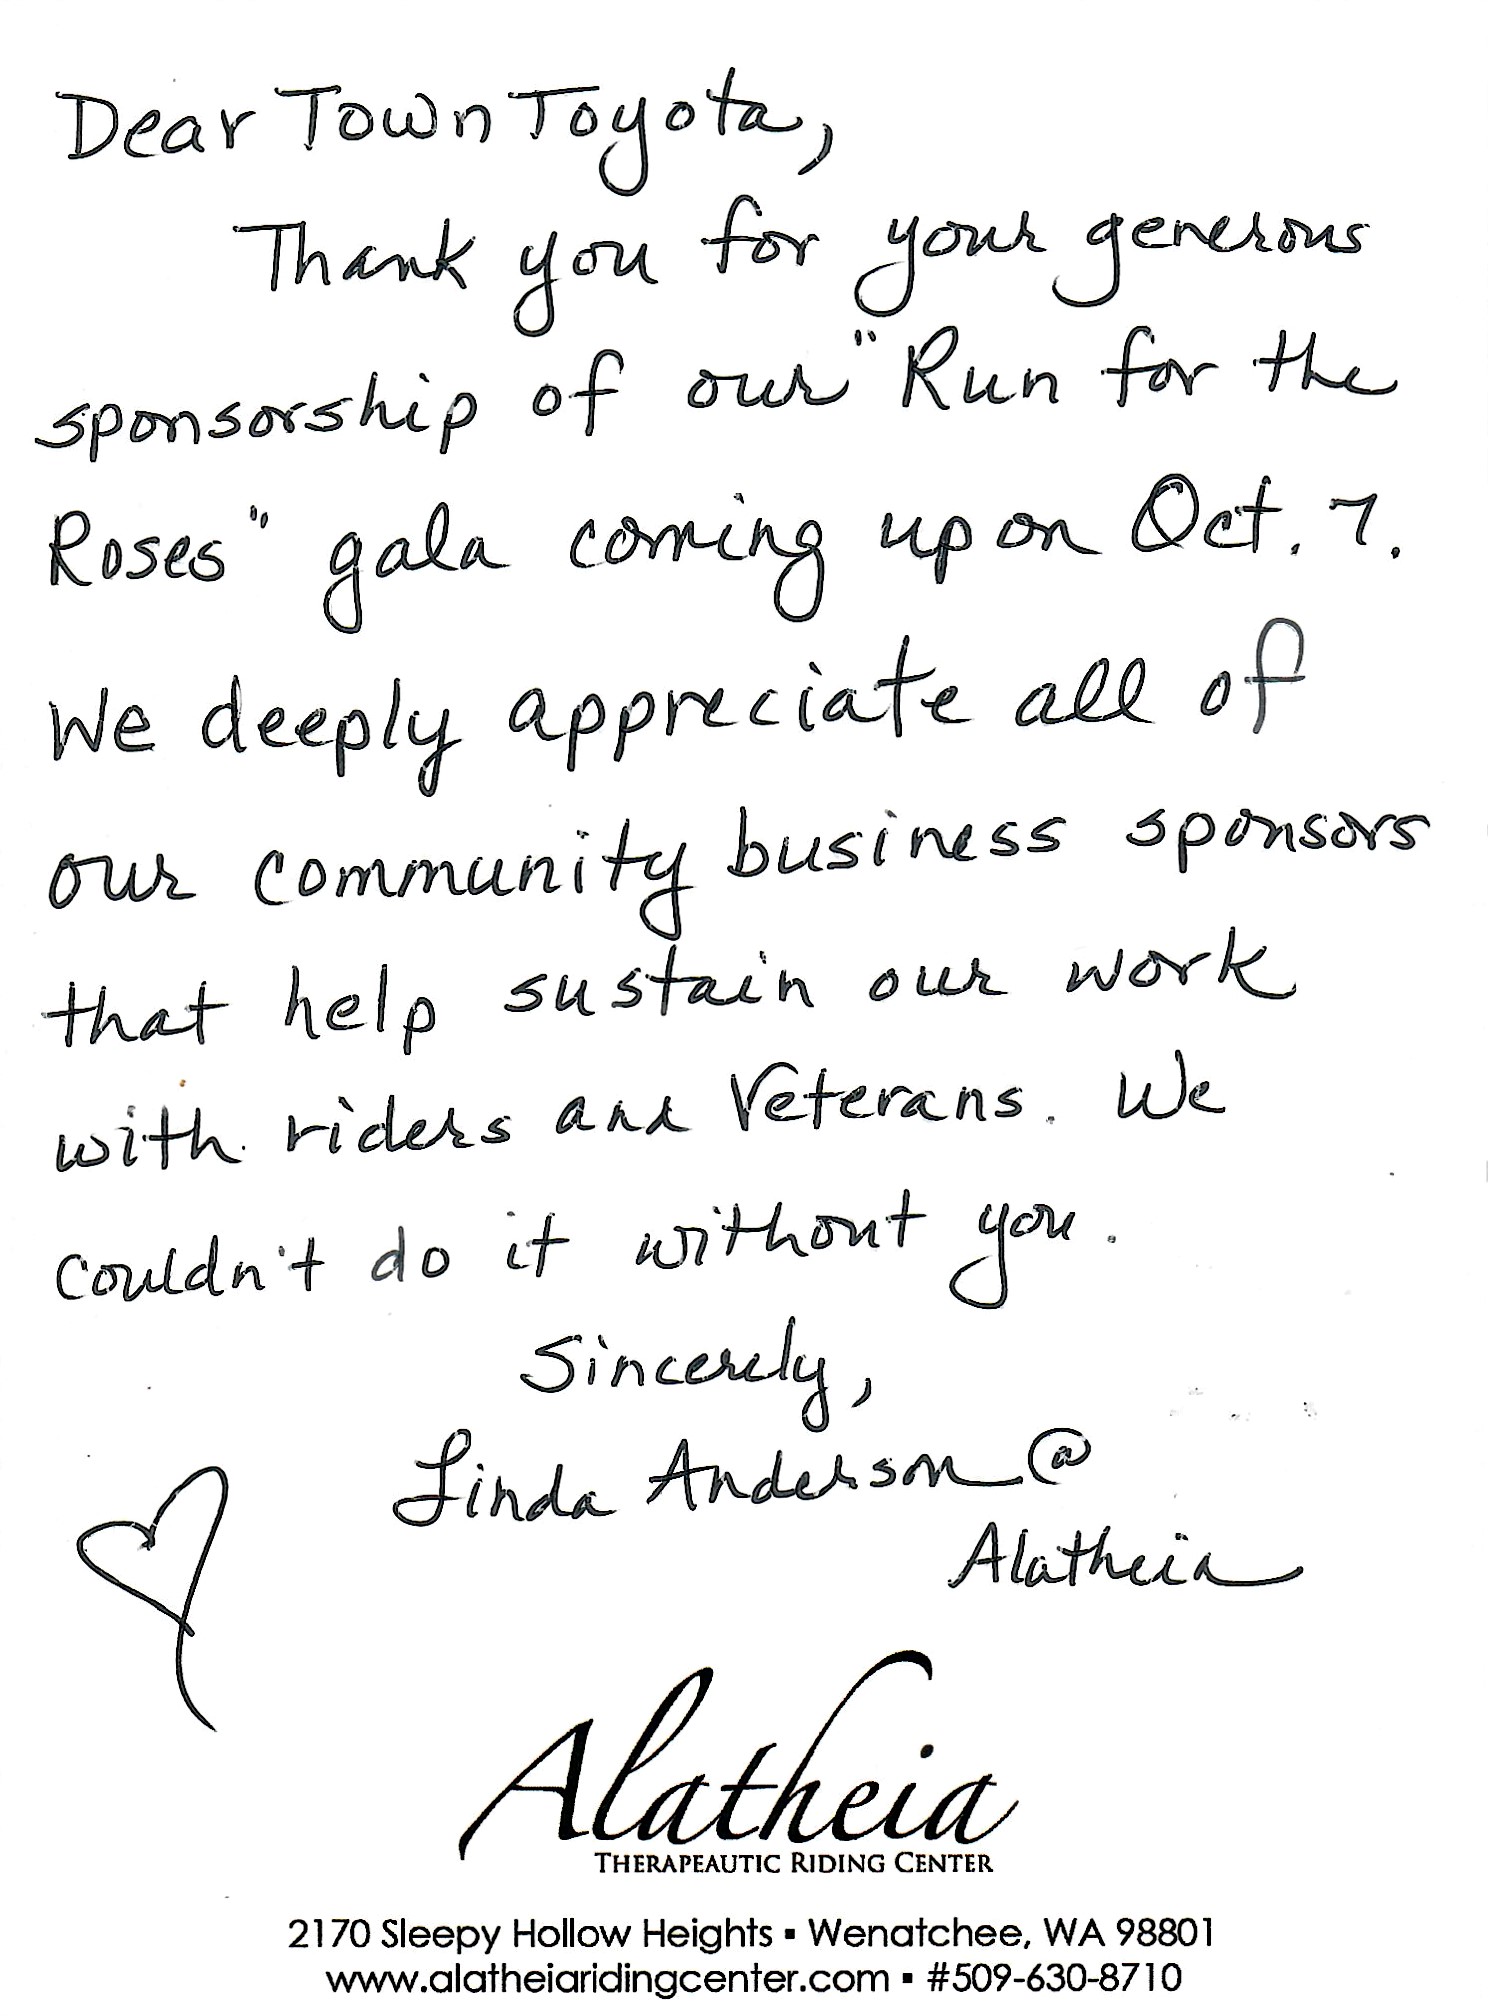 Dear Town Toyota,
Thank you for your generous
sponsorship of our "Run for the
Roses" gala coming up on Oct. 7.
We deeply appreciate all of
our community business sponsors
that help sustain our work
with riders and Veterans. We
couldn't do it without you.
Sincerely,
Linda Anderson @
Alatheia
Alatheia
THERAPEAUTIC RIDING CENTER
2170 Sleepy Hollow Heights ▪ Wenatchee, WA 98801
www.alatheiaridingcenter.com ▪ #509-630-8710